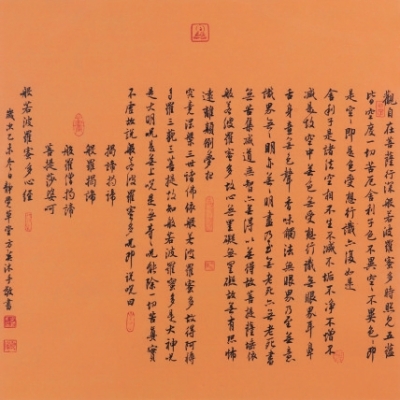 觀自在菩薩行深般若波羅蜜多時照見五蘊
皆空度一切苦厄舍利子色不異空空不異色色即
是空空即是色受想行識亦復如是
舍利子是諸法空相不生不滅不垢不淨不增不
減是故空中無色無受想行識無眼耳鼻
舌身意無色聲香味觸法無眼界乃至無意
識界無無明亦無無明盡乃至無老死亦無老死盡
無苦集滅道無智亦無得以無所得故菩提薩埵依
般若波羅蜜多故心無罣礙無罣礙故無有恐怖
遠離顛倒夢想
究竟涅槃三世諸佛依般若波羅蜜多故得阿耨
多羅三藐三菩提故知般若波羅蜜多是大神咒
是大明咒是無上咒是無等等咒能除一切苦真實
不虛故說般若波羅蜜多咒即說咒曰
揭諦揭諦
般羅揭諦
般羅僧揭諦
菩提莎婆呵
般若波羅蜜多心經